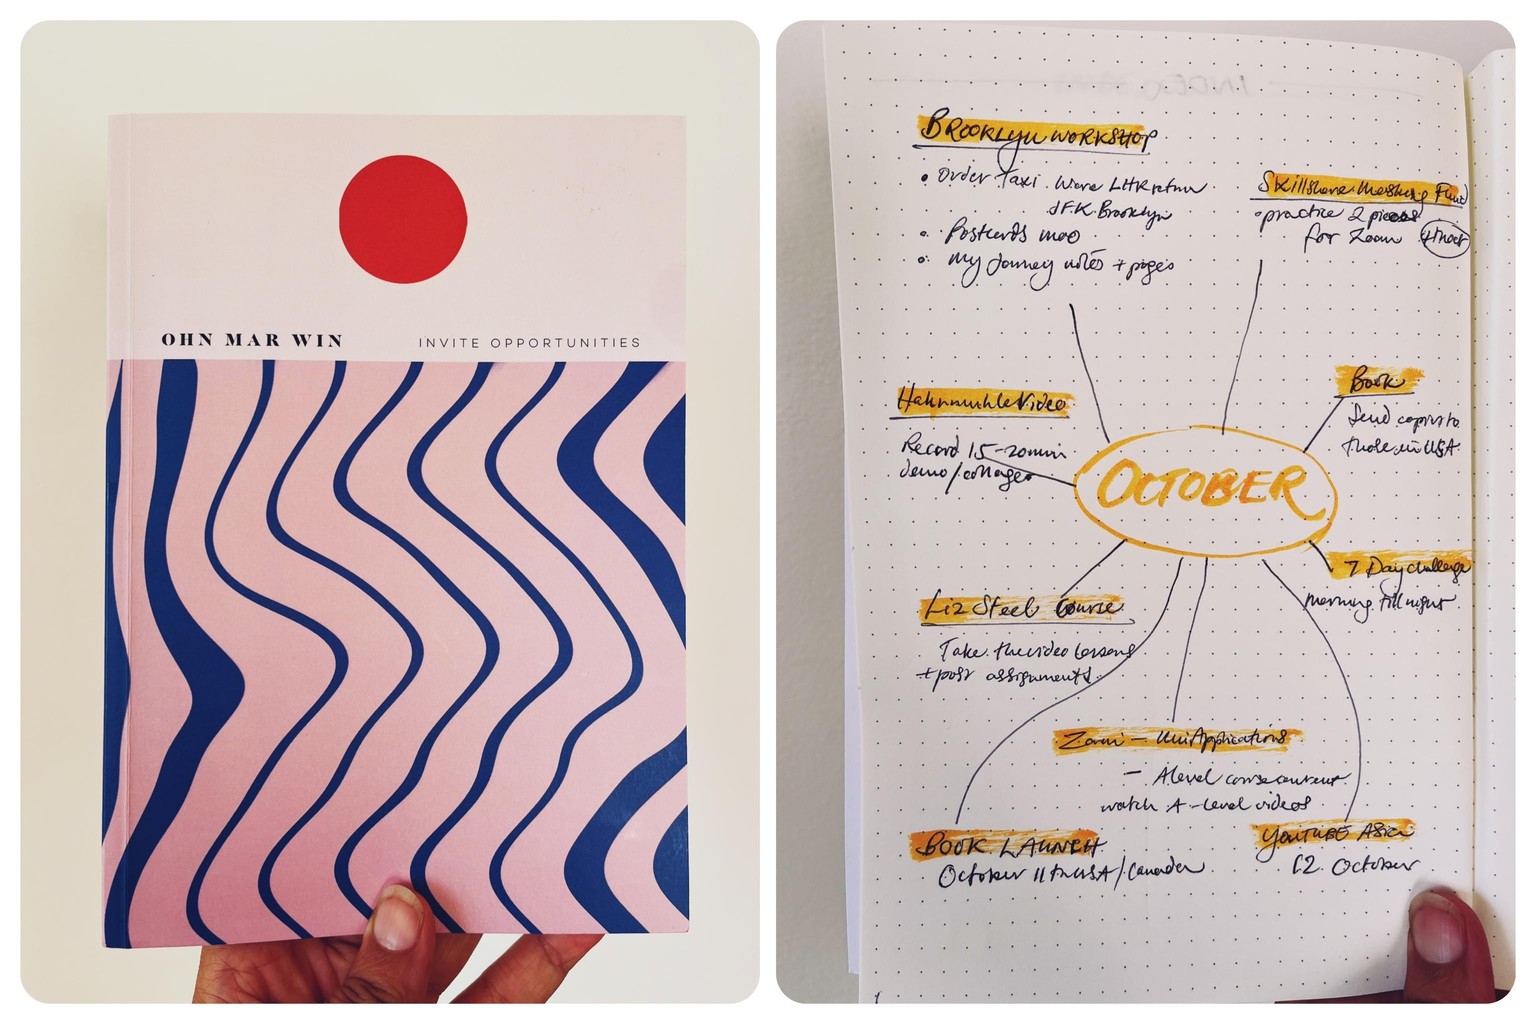 OHN MAR WIN
INVITE OPPORTUNITIES
BROOKLYN WORKSHOP
• Order Taxi
JFK Brooklyn
• Postcards moo
• My Journey notes + pages
Skillshare
• practice 2 pieces
for Zoom
Book
Send copies to
those in USA
Hahnmuhle Video
Record 15-20min
demo/collages
OCTOBER
7 Day challenge
morning till night
Liz Steel Course
Take the video lessons
+ post assignments
Zoom - Uni Applications
- A level
watch A-level videos
BOOK LAUNCH
October 11th USA/Canada
YOUTUBE ASIA
12 October